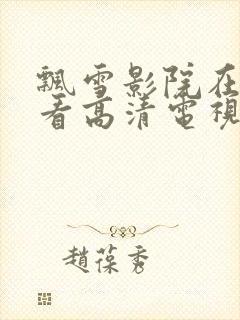 飄雪影院在
看高清電視
趙葆秀